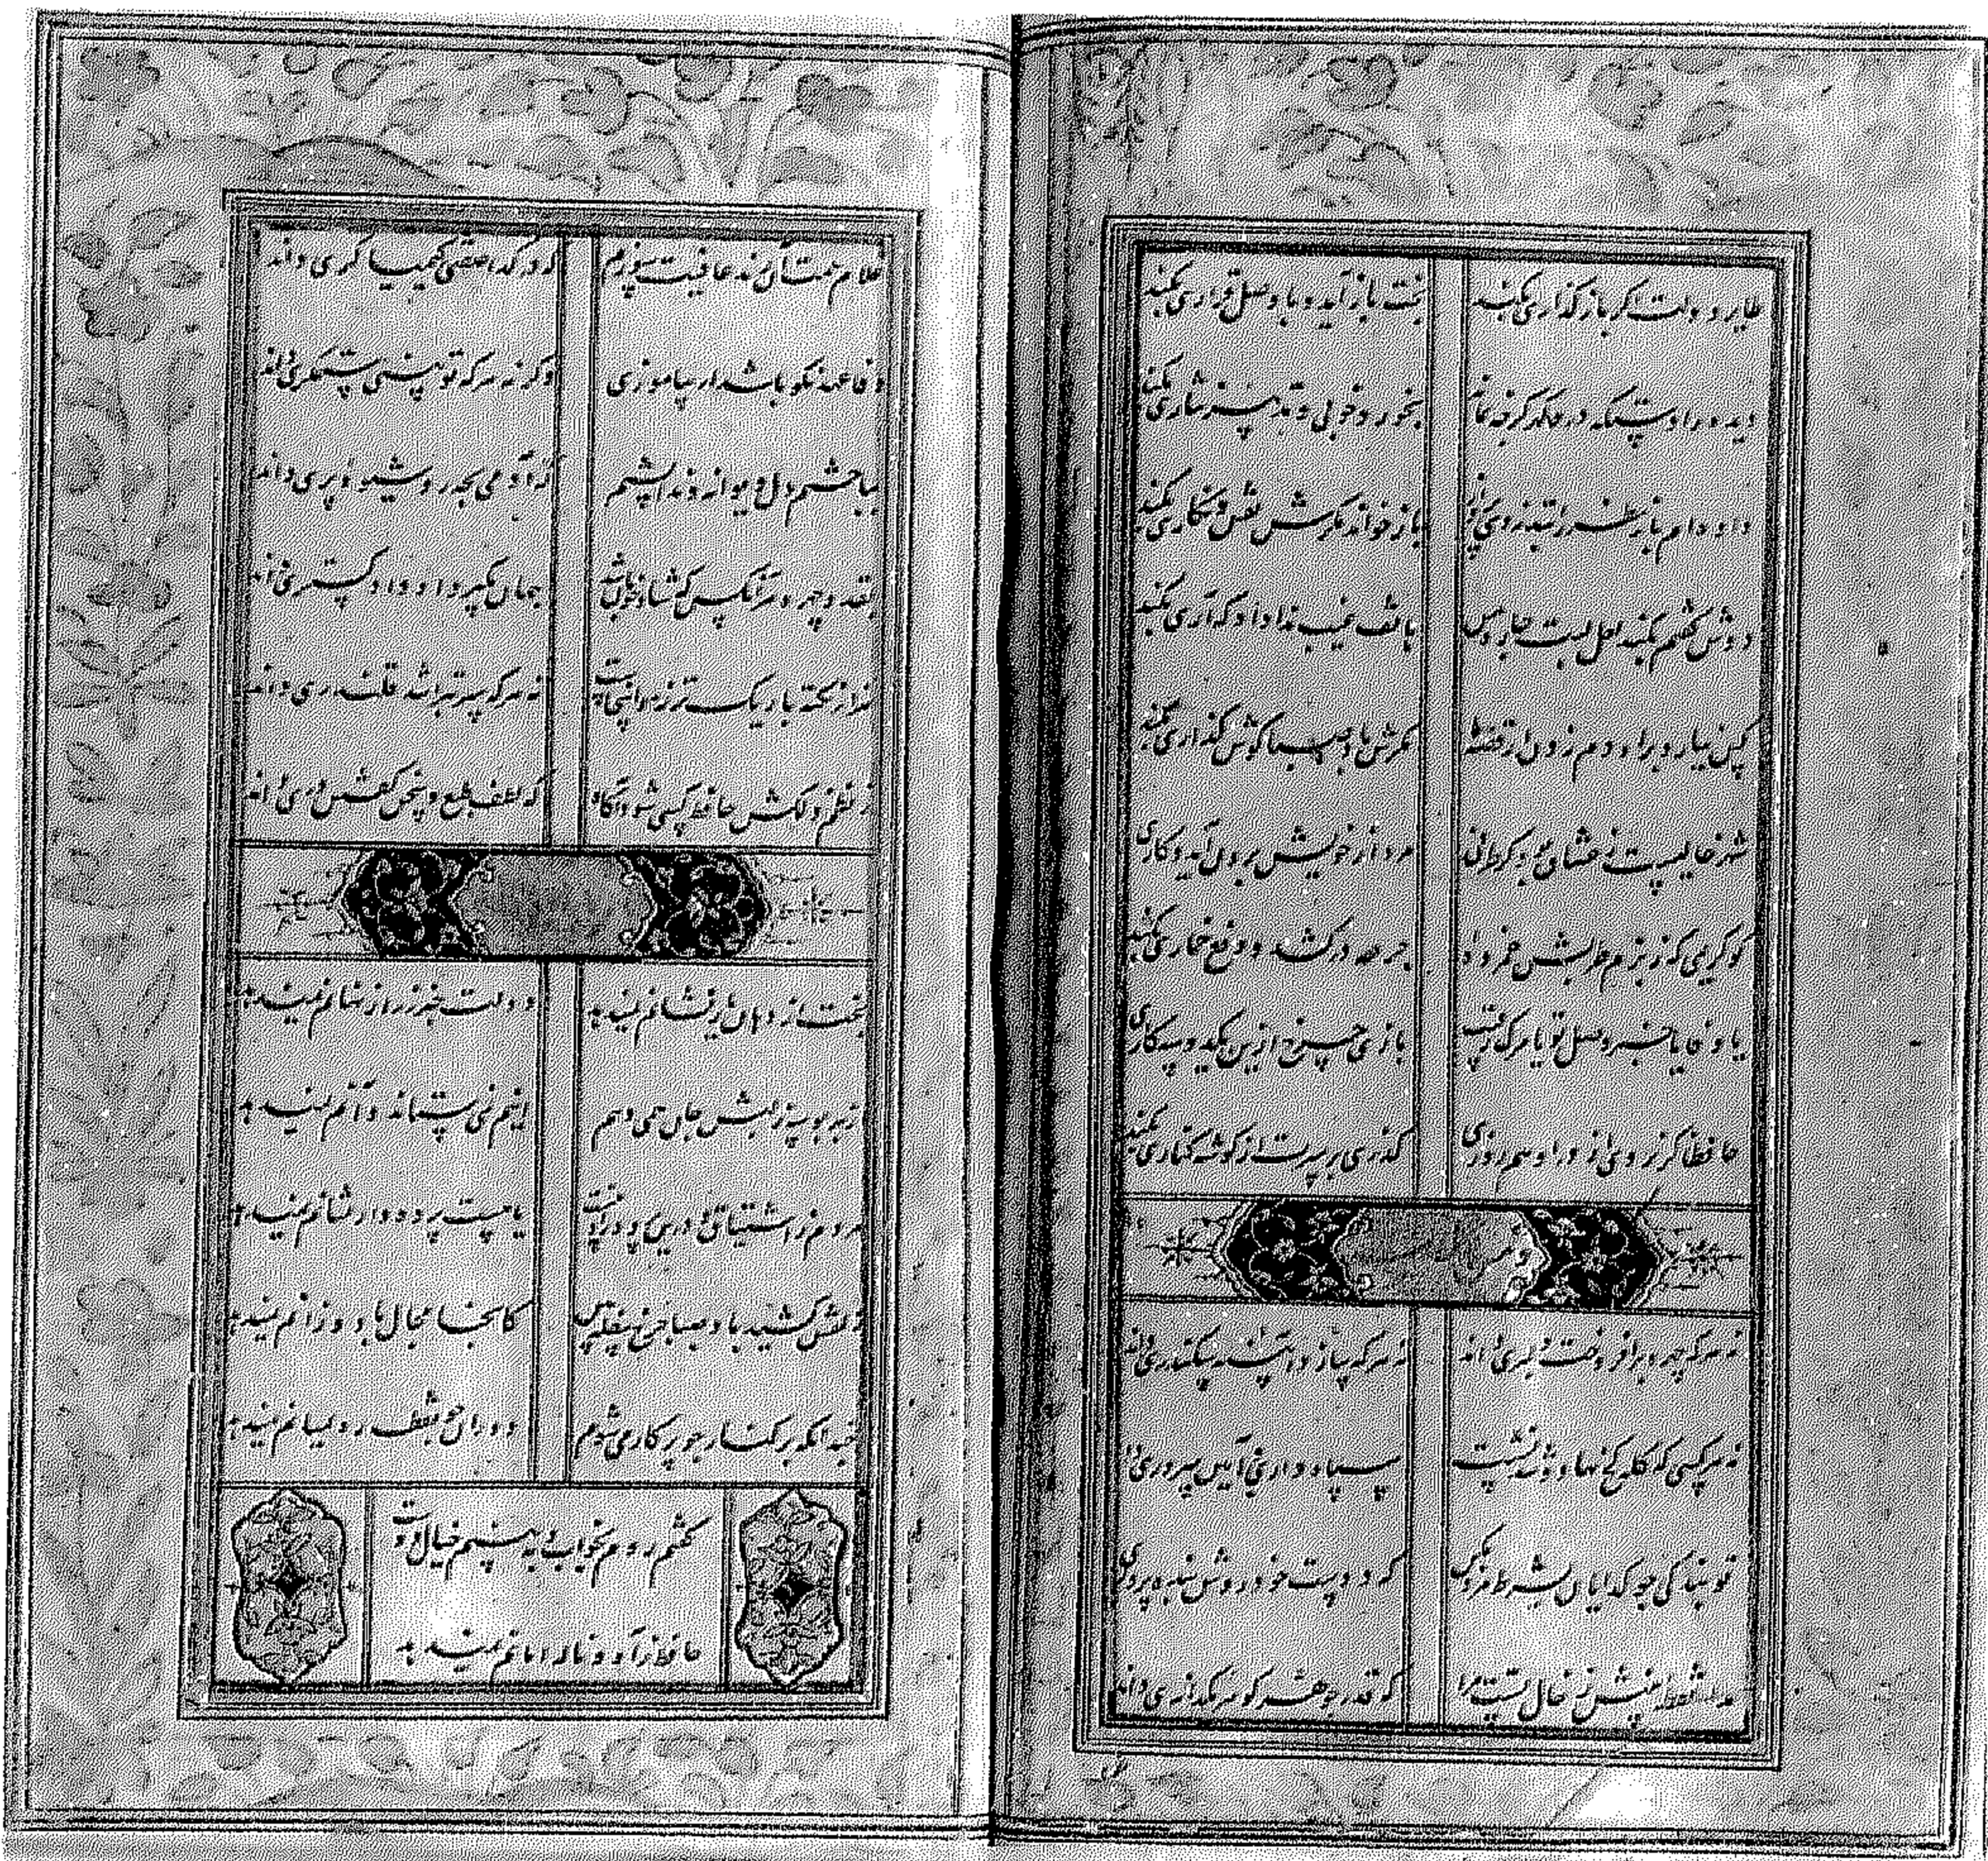 طایر دولت اگر باز گذاری بکند بخت باز آید و با وصل قراری بکند
دیده را دستگه در و گهر گرچه نماند بخورد خونی و تدبیر نثاری بکند
داده‌ام باز نظر را بتذروی پرواز باز خواند مگرش نقش و شکاری بکند
دوش گفتم بکند لعل لبت چاره من هاتف غیب ندا داد که آری بکند
کس نیارد بر او دم زدن از قصه ما مگرش باد صبا گوش گذاری بکند
شهر خالیست ز عشاق بود کز طرفی مرد از خویش برون آید و کاری بکند
کو کریمی که ز بزم طربش غمزده جرعه درکشد و دفع خماری بکند
یا وفا یا خبر وصل تو یا مرگ رقیب بازی چرخ ازین یک دو سه کاری بکند
حافظا گر نروی از در او هم روزی گذری بر سرت از گوشه کناری بکند
نه هرکه چهره برافروخت دلبری داند نه هرکه آینه سازد سکندری داند
نه هر کسی که کله کج نهاد و تند نشست سپاه داری و آیین سروری داند
تو بندگی چو گدایان بشرط مزد مکن که دوست خود روش بنده پروری داند
مدار نقطه بینش ز خال تست مرا که قدر گوهر یکدانه گوهری داند
غلام همت آن رند عافیت سوزم که در گدا صفتی کیمیا گری داند
وفا عهد نکو باشد ار بیاموزی وگرنه هرکه تو بینی ستمگری داند
بباختم دل دیوانه و ندانستم که آدمی بچه‌ر شیوه پری داند
بقد و چهره هر آنکس که شاه خوبان شد جهان بگیرد اگر دادگستری داند
هزار نکته باریکتر ز مو اینجاست نه هرکه سر بتراشد قلندری داند
ز نظم دلکش حافظ کسی شود آگاه که لطف طبع و سخن گفتن دری داند
بخت از دهان یار نشانم نمیدهد دولت خبر ز راز نهانم نمیدهد
از بهر بوسه ز لبش جان همی دهم اینم نمی ستاند و آنم نمیدهد
مردم ز اشتیاق و درین پرده راه نیست یا هست پرده دار نشانم نمیدهد
زلفش کشید باد صبا چرخ سفله بین کانجا مجال باد وزانم نمیدهد
چندانکه بر کنار چو پرگار می شوم دوران چو نقطه ره بمیانم نمیدهد
گفتم روم بخواب و ببینم خیال دوست
حافظ ز آه و ناله امانم نمیدهد